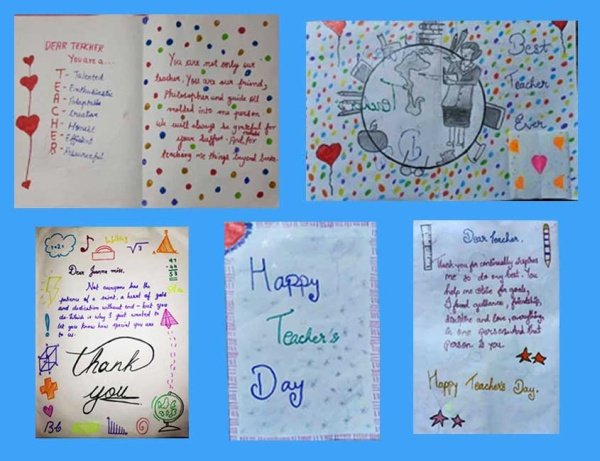 DEAR TEACHER
You are a...
T- Talented
E- Enthusiastic
A- Adaptable
C- Creative
H- Honest
E- Efficient
R- Resourceful
You are not only our
teacher. You are our friend,
Philosopher and guide all
molded into one person
We will always be grateful for
your support. And for
teaching me things beyond books.
Best
Teacher
Ever
√3
Dear miss,
Not everyone has the
patience of a saint, a heart of gold
and dedication without end - but you
do. Which is why I just wanted to
let you know how special you are
to us.
Thank
you
Happy
Teacher's
Day
Dear Teacher,
Thank you for continually inspiring
me to do my best. You
help me for goals,
I found guidance, friendship,
discipline and love, everything,
in one person. And that
person is you.
Happy Teacher's Day.